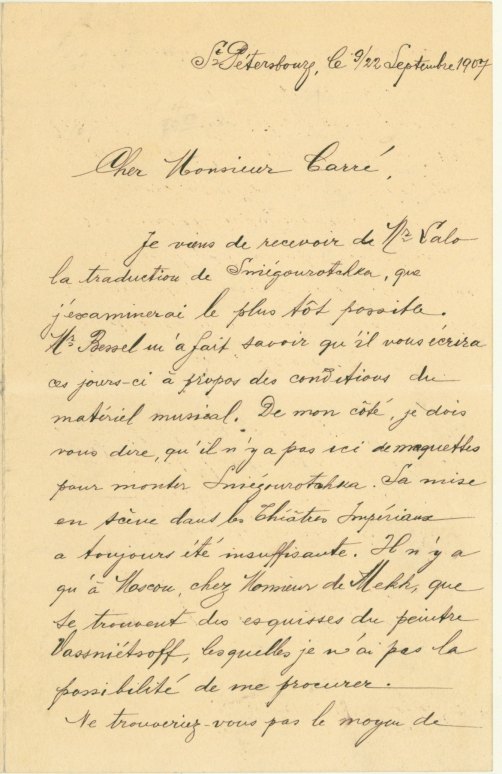 St Pétersbourg, le 9/22 Septembre 1907
Cher Monsieur Carré,
Je viens de recevoir de Mr Lalo
la traduction de Sniégourotchka, que
j'examinerai le plus tôt possible.
Mr Bessel m'a fait savoir qu'il vous écrira
ces jours-ci à propos des conditions du
matériel musical. De mon côté, je dois
vous dire, qu'il n'y a pas ici de maquettes
pour monter Sniégourotchka. Sa mise
en scène dans les Théâtres Impériaux
a toujours été insuffisante. Il n'y a
qu'à Moscou, chez Monsieur de Mekk, que
se trouvent des esquisses du peintre
Vassniétsoff, lesquelles je n'ai pas la
possibilité de me procurer. —
Ne trouveriez-vous pas le moyen de